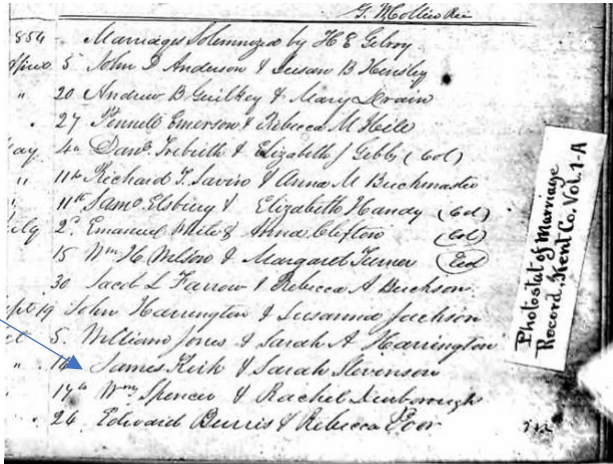 G. Mollier Rec
1854 - Marriages Solemnized by H E Gilroy
5 John D Anderson & Susan B Hensley
" 20 Andrew B Guilkey & Mary Drain
" 27 Pennell Emerson & Rebecca M Hill
May 4th Danl. & Elizabeth J Gibbs (Col)
" 11th Richard T. Savin & Anna M Buckmaster
11th Saml. Elsbury & Elizabeth Handy (Col)
2d. Emanuel & Anna Clifton (Col)
15 Wm. H. Wilson & Margaret Turner (Col)
30 Jacob L Farrow & Rebecca A Dickson
Sept 19 John Harrington & Susanna Jackson
Oct 5. William Jones & Sarah A Harrington
" James Kirk & Sarah Stevenson
" 19th Wm. Spencer & Rachel
" 24. Edward Burris & Rebecca Poor
Photostat of Marriage
Record, Kent Co. Vol. 1-A